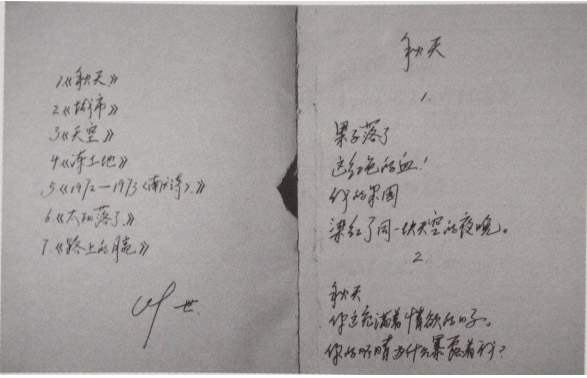 1.《秋天》
2《城市》
3《天空》
4《冻土地》
5《1972—1973(献诗)》
6《太阳落了》
7.《路上的月亮》
秋天
1.
果子落了
这红色的血!
的果园
染红了同一块天空的夜晚。
2.
秋天
你这充满着情欲的日子。
你的眼睛为什么暴露着我?